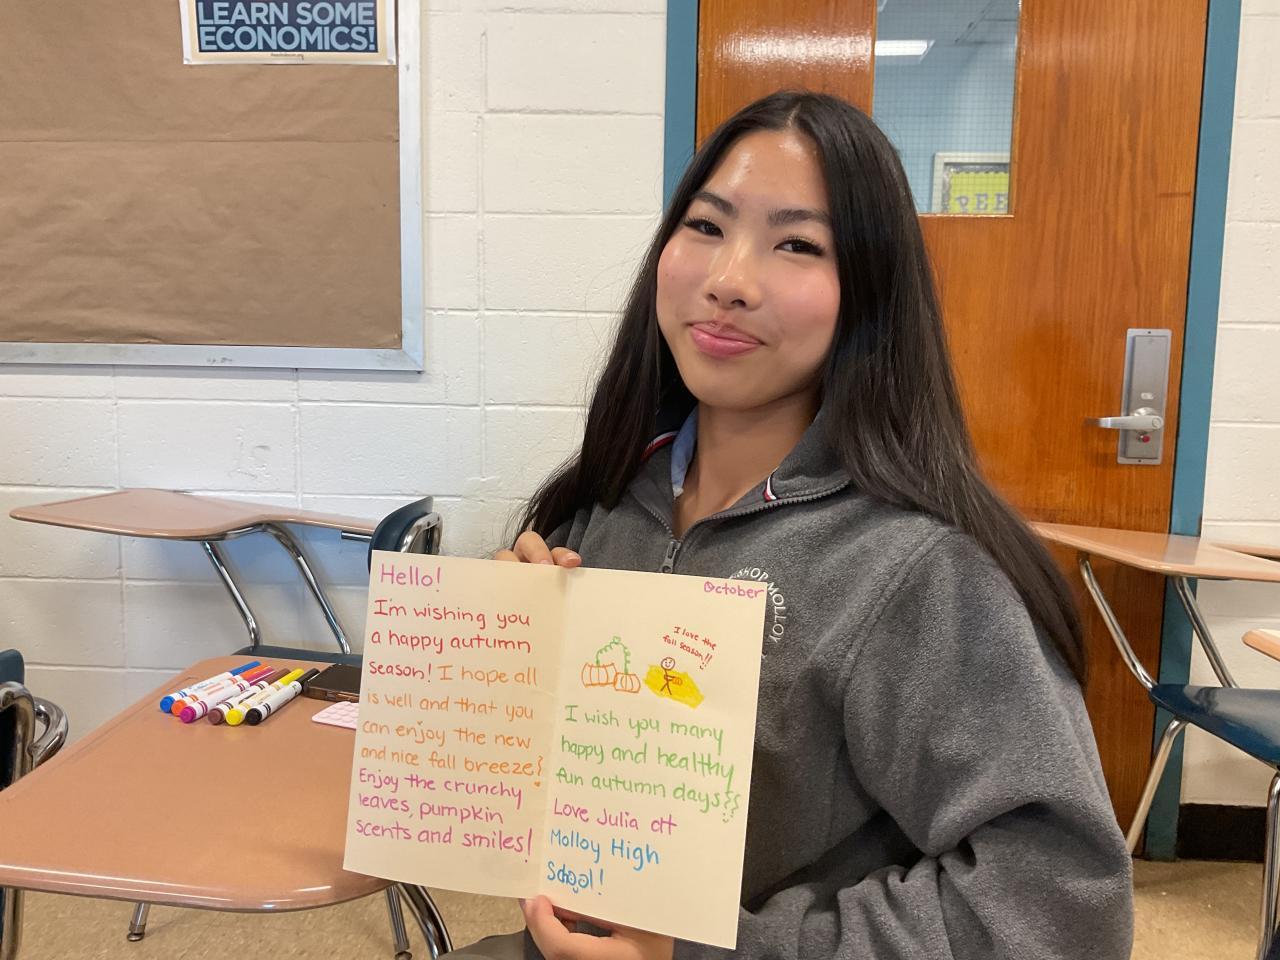 LEARN SOME
ECONOMICS!
Hello!
I'm wishing you
a happy autumn
season! I hope all
is well and that you
can enjoy the new
and nice fall breeze!
Enjoy the crunchy
leaves, pumpkin
scents and smiles!
October
I love the
fall season!!
I wish you many
happy and healthy
fun autumn days!!
Love Julia at
Molloy High
School!
MOLLOY